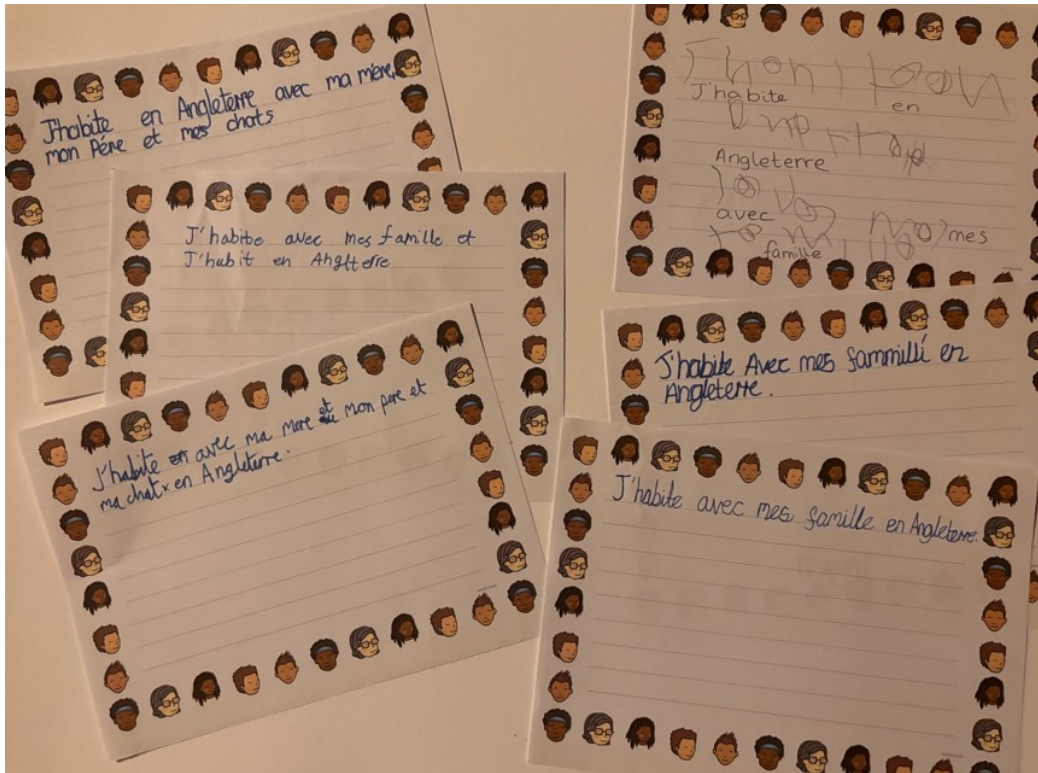 J'habite en Angleterre avec ma mère,
mon Pére et mes chats
J'habite avec mes famille et
J'habit en Anglterre
J'habite avec ma mere et mon pere et
ma chat en Angleterre.
J'habite en
Angleterre
avec mes
famille
J'habite Avec mes fammillí en
Angleterre.
J'habite avec mes famille en Angleterre.